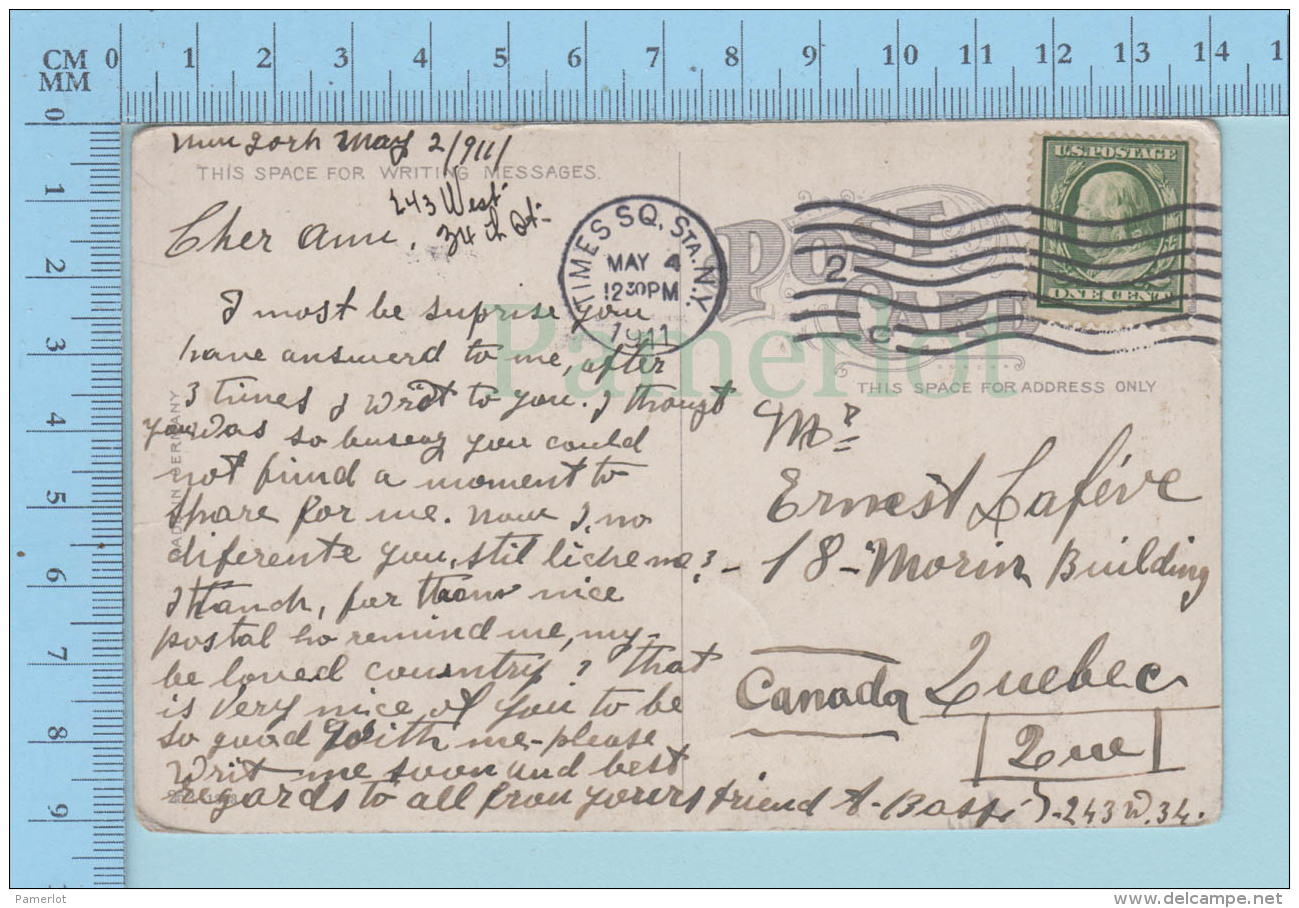 CM 0 1 2 3 4 5 6 7 8 9 10 11 12 13 14 1
MM
0 1 2 3 4 5 6 7 8 9
New York May 2/911/
THIS SPACE FOR WRITING MESSAGES.
243 West
34 th St-
Cher Ami,
I most be suprise you
have answerd to me, after
3 times I writ to you. I thougt
you was so buseay you could
not find a moment to
spare for me. now I, no
diferente you, stil liche me? -
I thanch, for thoas nice
postal ho remind me, my-
be loved country? That
is very nice of you to be
so good with me-please
Writ me soon and best
regards to all from yorers friend A- Bassi
-243 W. 34.
MADE IN GERMANY
TIMES SQ. STA. N.Y.
MAY 4
12 30 PM
1911
2
C
POST CARD
U.S. POSTAGE
ONE CENT
THIS SPACE FOR ADDRESS ONLY
Mr
Ernest Laféve
18-Morin Building
Canada Quebec
Que
Pamerlot
Pamerlot
www.delcampe.net